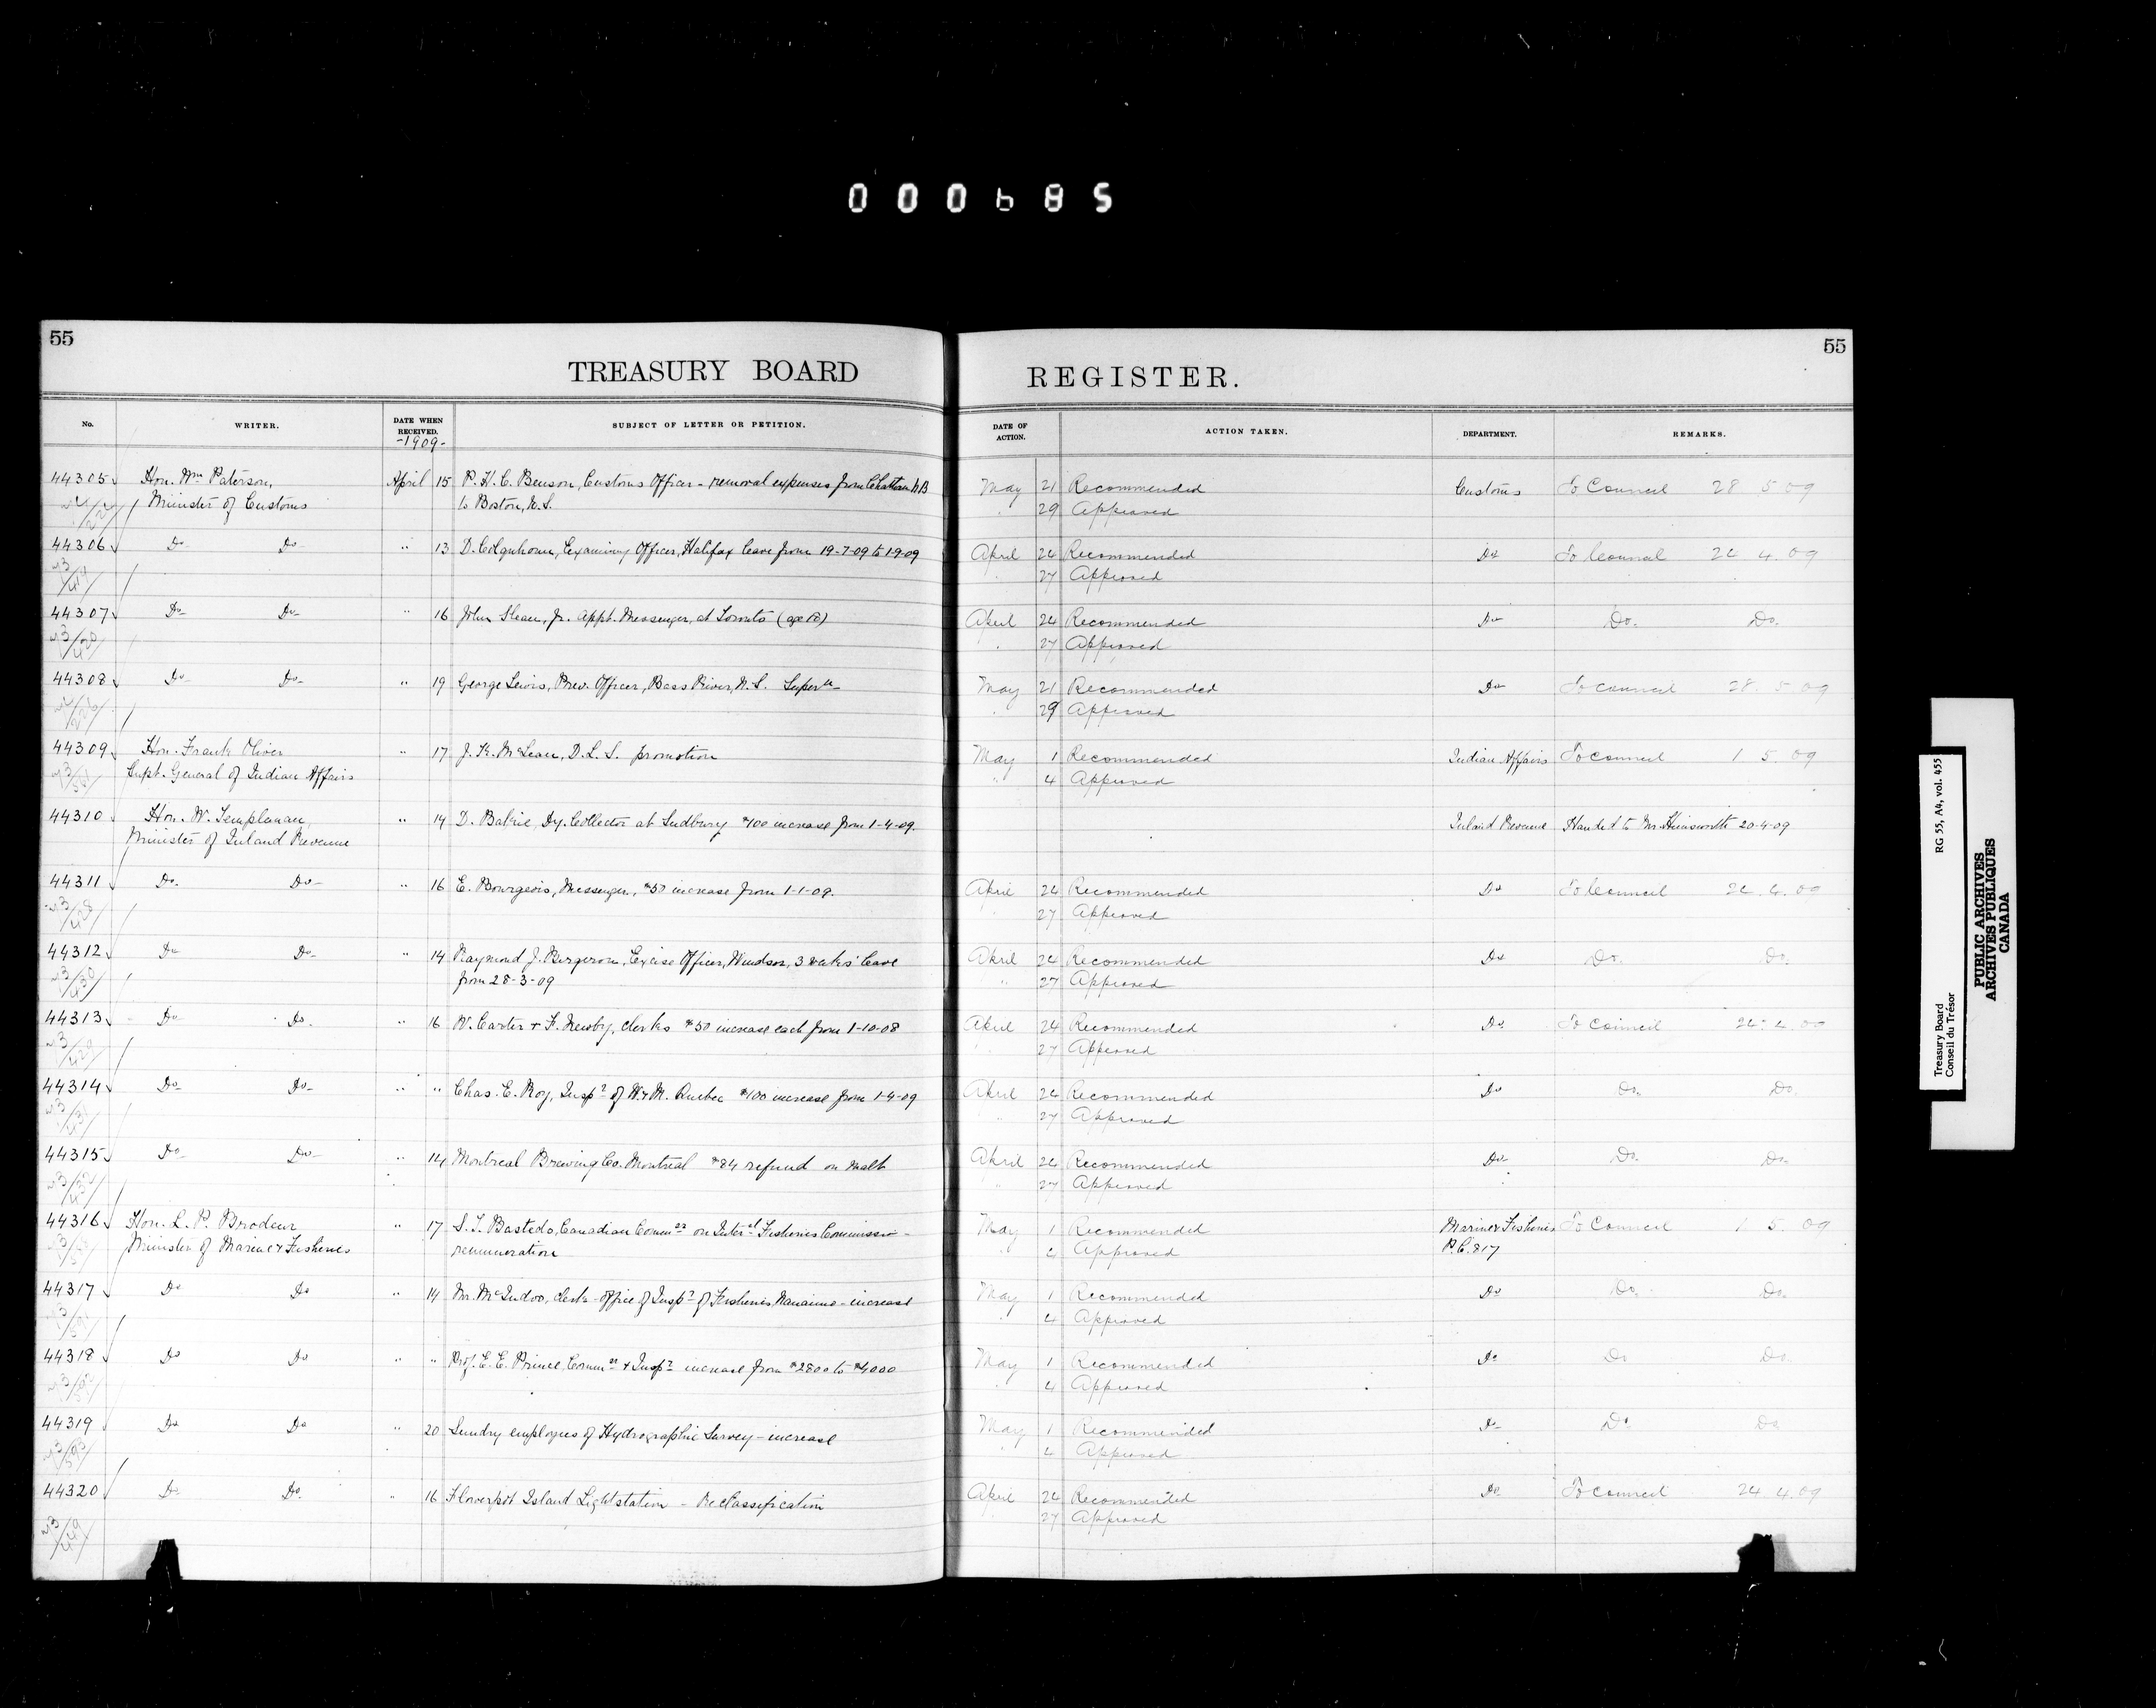 000685
55
55
TREASURY BOARD REGISTER.
No. WRITER. DATE WHEN RECEIVED. SUBJECT OF LETTER OR PETITION. DATE OF ACTION. ACTION TAKEN. DEPARTMENT. REMARKS.
-1909-
44305 Hon. Wm Paterson, April 15 P. H. C. Benson, Customs Officer - removal expenses from Chatham N.B May 21 Recommended Customs To Council 28 5 09
Minister of Customs to Boston, N.S. 29 Approved
44306 Do- Do- " 13 D. Colquhoun, Examining Officer, Halifax leave from 19-7-09 to 1-9-09 April 24 Recommended Do To Council 24 4.09
27 Approved
44307 Do- Do- " 16 John Sloan, Jr. Appt. Messenger, at Toronto April 24 Recommended Do Do. Do.
27 Approved
44308 Do- Do- " 19 George Lewis, Prev. Officer, Bass River, N.S. Super'n- May 21 Recommended Do To Council 28. 5.09
29 Approved
44309 Hon. Frank Oliver " 17 J. K. McLean, D.L.S. promotion May 1 Recommended Indian Affairs To Council 1 5. 09
Supt. General of Indian Affairs " 4 Approved
44310 Hon. W. Templeman, " 14 D. Dy. Collector at Sudbury $100 increase from 1-4-09. Inland Revenue Handed to Mr. Himsworth 20-4-09
Minister of Inland Revenue
44311 Do. Do- " 16 E. Bourgeois, Messenger, $50 increase from 1-1-09. April 24 Recommended Do To Council 24.4.09
27 Approved
44312 Do Do- " 14 Raymond J. Bergeron, Excise Officer, Windsor, 3 weeks' leave April 24 Recommended Do Do. Do.
from 28-3-09 27 Approved
44313 Do- Do. " 16 W. Carter & F. Newby, clerks $50 increase each from 1-10-08 April 24 Recommended Do. To Council 24.4.09
27 Approved
44314 Do- Do- " " Chas. E. Roy, Inspr of W. & M. Quebec $100 increase from 1-4-09 April 24 Recommended Do Do. Do.
27 Approved
44315 Do- Do- " 14 Montreal Brewing Co. Montreal $84 refund on malt April 24 Recommended Do. Do. Do.
27 Approved
44316 Hon. L. P. Brodeur " 17 S. T. Bastedo, Canadian Commr on Interal Fisheries Commission - May 1 Recommended Marine & Fisheries To Council 1 5. 09
Minister of Marine & Fisheries remuneration 4 Approved P.C. 817
44317 Do Do " 14 Mr. McIndoo, clerk - office of Inspr of Fisheries, Nanaimo - increase May 1 Recommended Do Do. Do.
4 Approved
44318 Do Do " " Prof. E. E. Prince, Commr & Inspr increase from $2800 to $4000 May 1 Recommended Do Do Do.
4 Approved
44319 Do Do " 20 Sundry employees of Hydrographic Survey - increase May 1 Recommended Do- Do Do
4 Approved
44320 Do Do. " 16 Flowerpot Island Lightstation - Reclassification April 24 Recommended Do To Council 24 4 09
27 Approved
Treasury Board RG 55, A4, vol. 455
Conseil du Trésor
PUBLIC ARCHIVES
ARCHIVES PUBLIQUES
CANADA